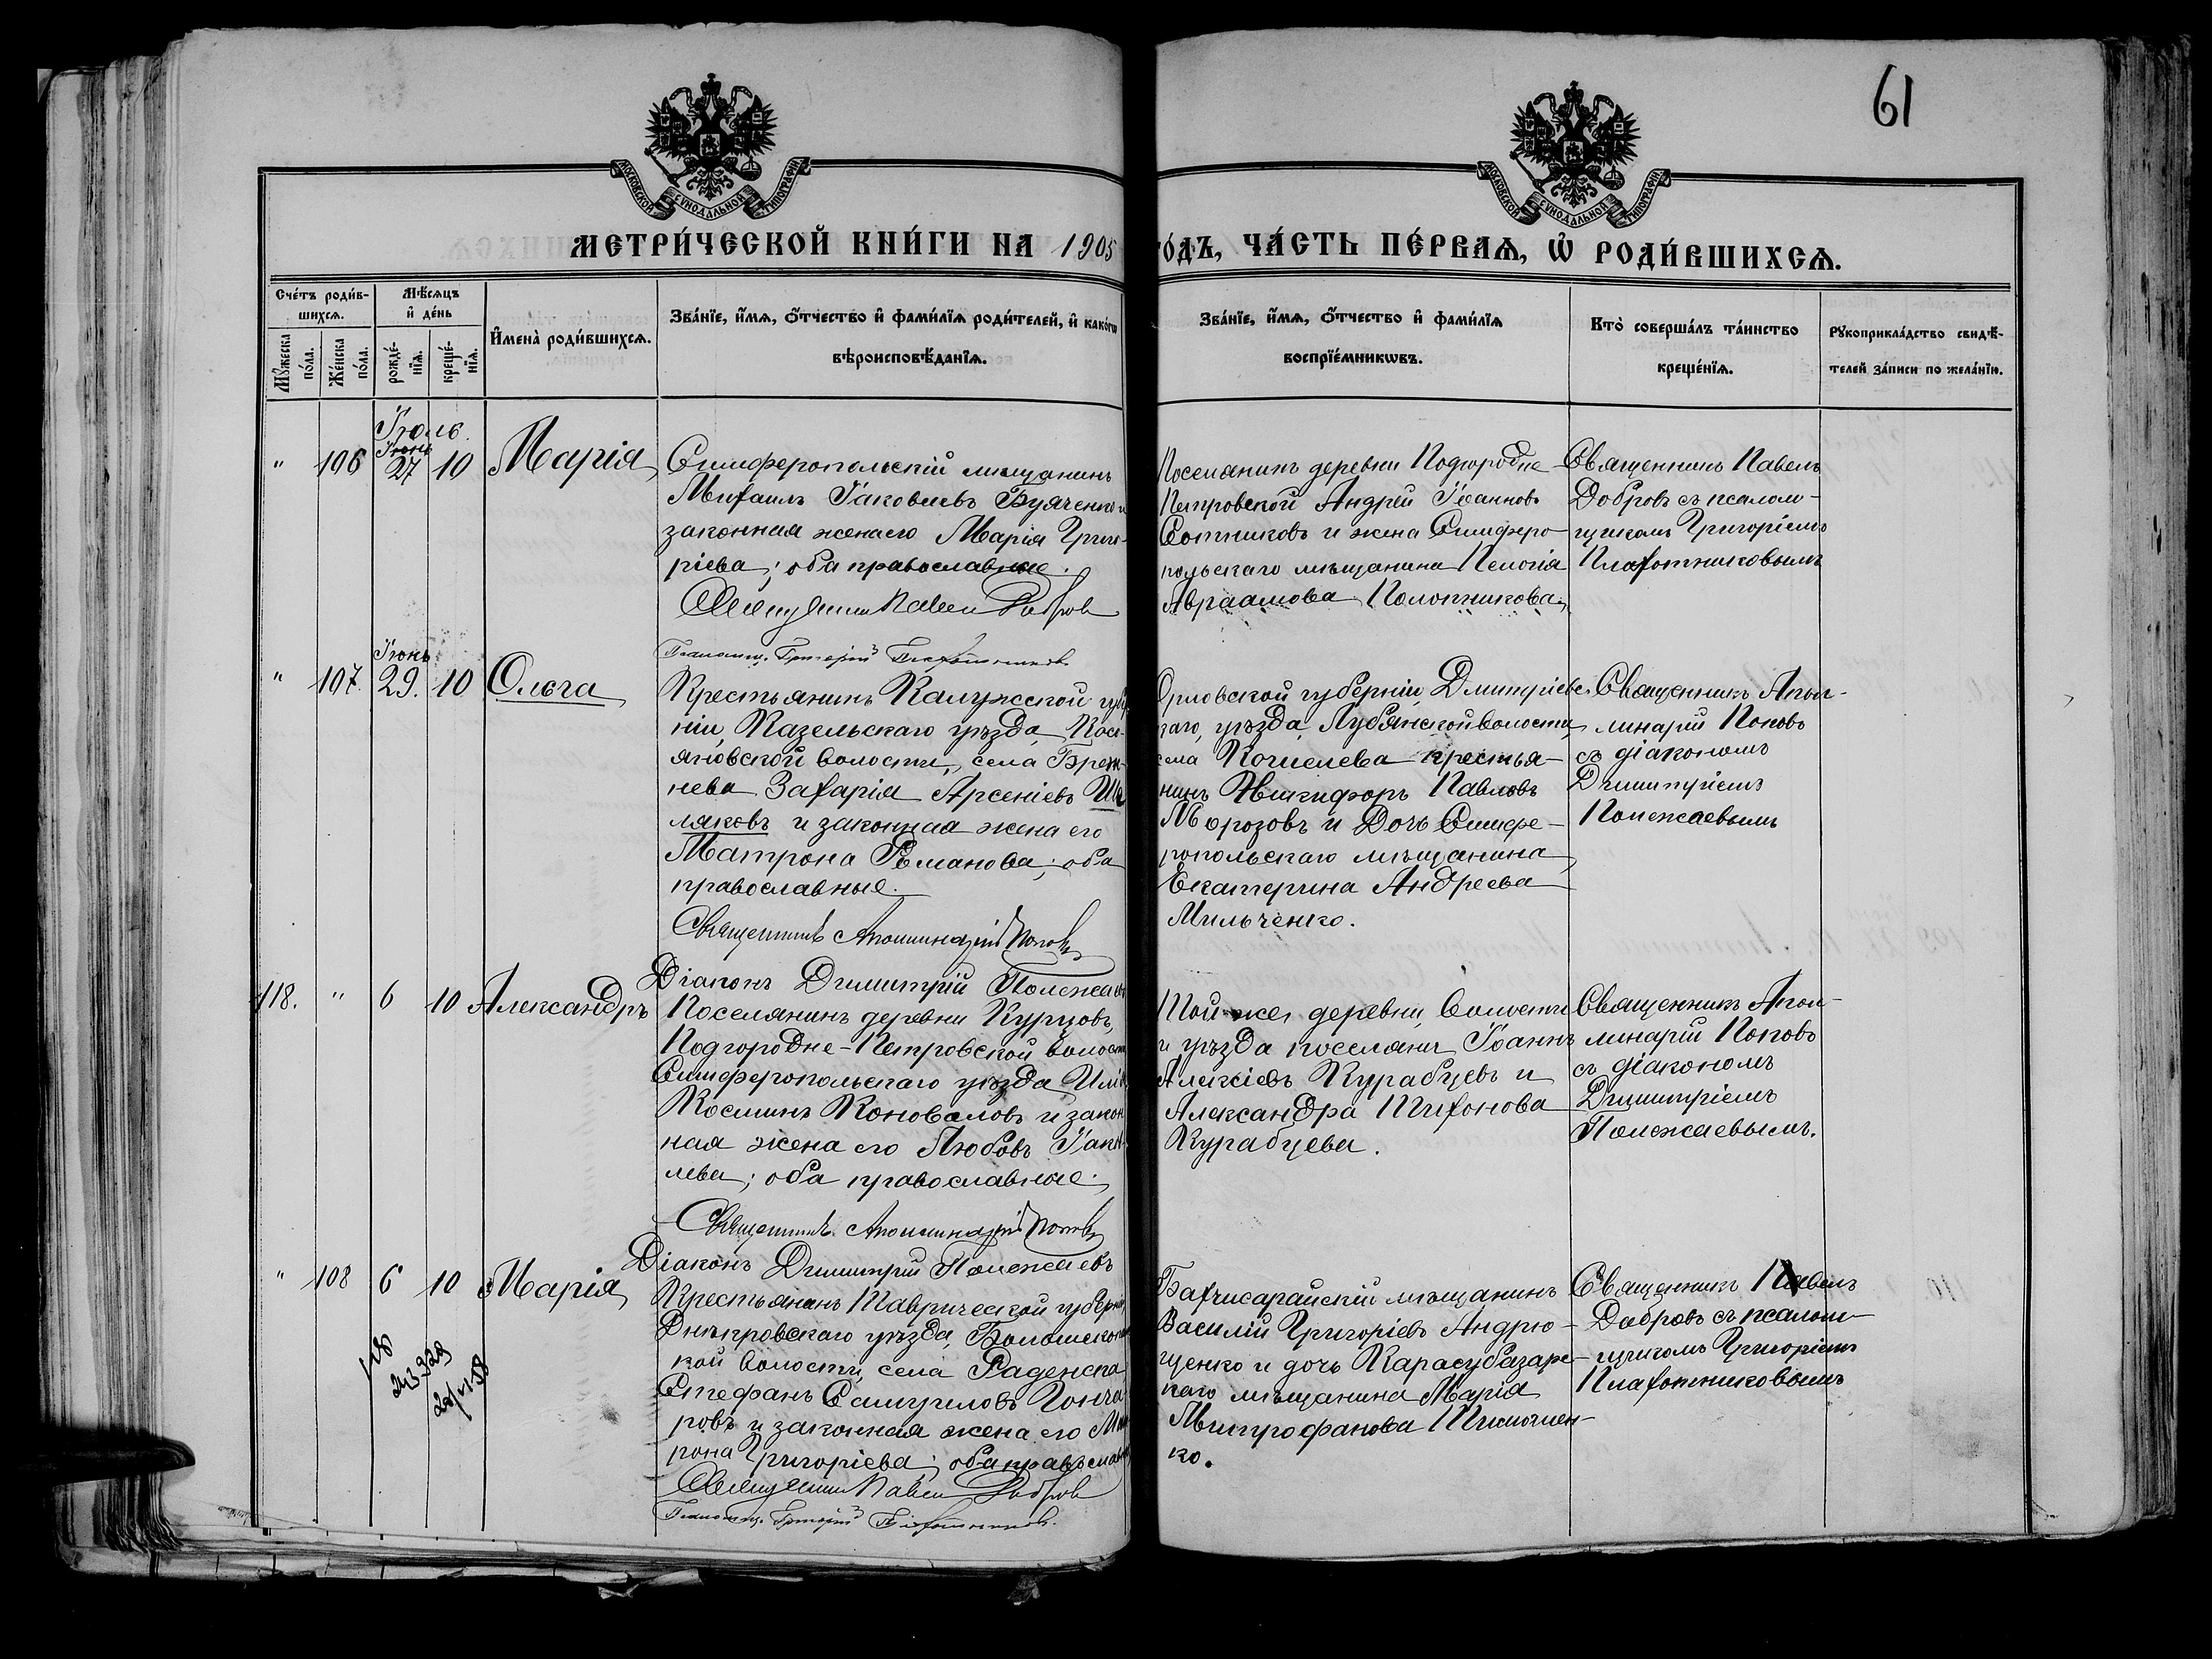 61
МОСКОВСКОЙ СѴНОДАЛЬНОЙ ТИПОГРАФІИ
МОСКОВСКОЙ СѴНОДАЛЬНОЙ ТИПОГРАФІИ
МЕТРИ́ЧЕСКОЙ КНИ́ГИ НА 1905
ГО́ДЪ, ЧА́СТЬ ПЕ́РВАѦ, Ѡ҆ РОДИ́ВШИХСѦ.
Сче́тъ роди́в-
шихсѧ.
Мꙋ́жеска
по́ла.
Же́нска
по́ла.
Мѣ́сѧцъ
и҆ де́нь
рожде́-
нїѧ.
креще́-
нїѧ.
И҆мена̀ роди́вшихсѧ.
Зва́нїе, и҆́мѧ, ѻ҆́тчество и҆ фами́лїѧ роди́телей, и҆ како́гѡ
вѣроисповѣ́данїѧ.
Зва́нїе, и҆́мѧ, ѻ҆́тчество и҆ фами́лїѧ
воспрїе́мникѡвъ.
Кто̀ соверша́лъ та́инство
креще́нїѧ.
Рꙋкоприкла́дство свидѣ́-
телей за́писи по жела́нїю.
Іюль.
" 106 Іюнь 27 10 Марія
Симферопольскій мѣщанинъ
Михаилъ Іаковлевъ
законная жена его Марія Григо-
ріева; оба православные.
Священникъ Павелъ Добровъ
Псаломщ. Григорій Плахотниковъ
Поселянинъ деревни Подгородне-
Петровской Андрей Іоанновъ
Сотниковъ и жена Симферо-
польскаго мѣщанина Пелагія
Авраамова Колотникова.
Священникъ Павелъ
Добровъ съ псалом-
щикомъ Григоріемъ
Плахотниковымъ
" 107. Іюнь 29. 10 Ольга
Крестьянинъ Калужской губер
ніи, Казельскаго уѣзда,
яновской волости, села
нева Захарія Арсеніевъ
ляковъ и законная жена его
Матрона Романова; оба
православные.
Священникъ Аполлинарій Поповъ
Діаконъ Димитрій Полежаев
Орловской губерніи, Дмитріевс
каго, уѣзда, Лубянской волости,
села Кошелева крестья-
нинъ Никифоръ Павловъ
Морозовъ и дочь Симфе-
ропольскаго мѣщанина,
Екатерина Андреева
Мильченко.
Священникъ Апол-
линарій Поповъ
съ діакономъ
Димитріемъ
Полежаевымъ
118. " 6 10 Александръ
Поселянинъ деревни Курцовъ,
Подгородне-Петровской волости
Симферопольскаго уѣзда Илія
Косминъ Коноваловъ и закон
ная жена его Любовь Іаков
лева; оба православные.
Священникъ Аполлинарій Поповъ
Діаконъ Димитрій Полежаевъ
Той же, деревни, волости
и уѣзда поселяни Іоаннъ
Алексіевъ Курабцевъ и
Александра Тихонова
Курабцева.
Священникъ Апол-
линарій Поповъ
съ діакономъ
Димитріемъ
Полежаевымъ.
" 108 6 10 Марія
Крестьянинъ Таврической губерніи,
Днѣпровскаго уѣзда,
кой волости, села Раденска
Стефанъ Самуиловъ Гонча
ровъ и законная жена его Мат
рона Григоріева; оба православн
Священникъ Павелъ Добровъ
Псаломщ. Григорій Плахотниковъ.
Бахчисарайскій мѣщанинъ
Василій Григоріевъ Андрю-
щенко и дочь Карасубазарс-
каго мѣщанина Марія
Митрофанова Тимошен-
ко.
Священникъ Павелъ
Добровъ съ псалом-
щикомъ Григоріемъ
Плахотниковымъ